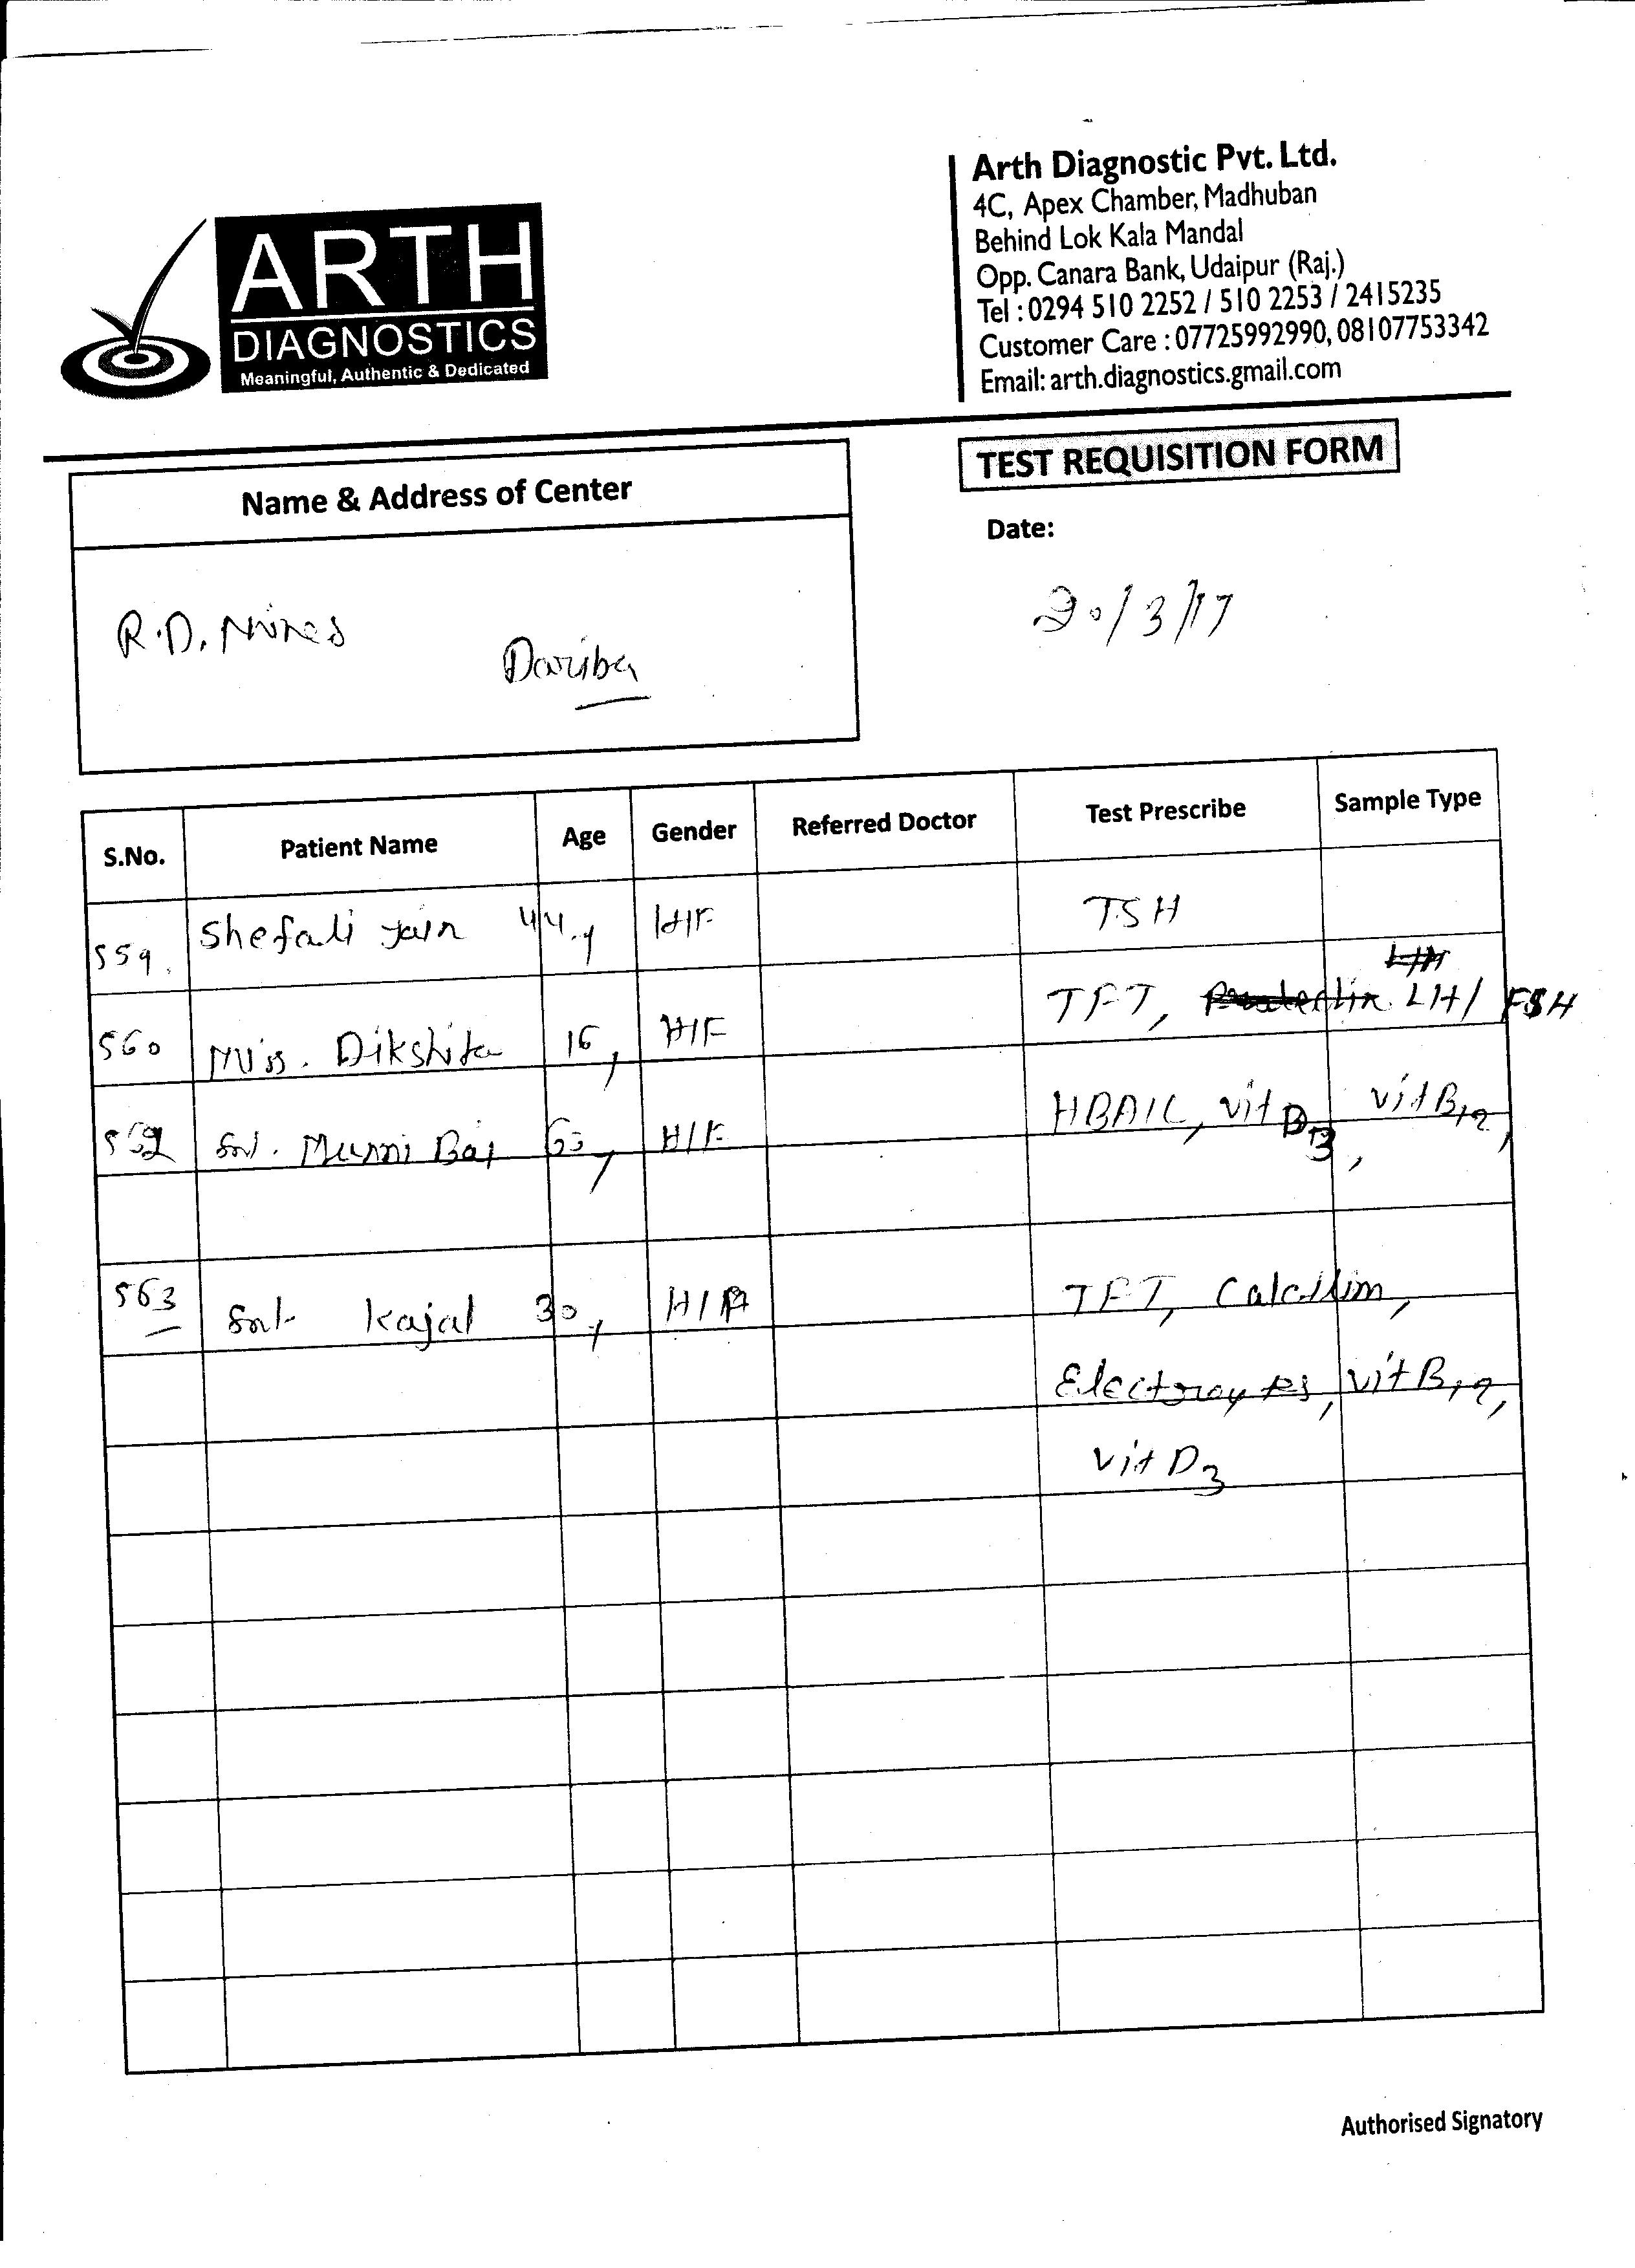 ARTH
DIAGNOSTICS
Meaningful, Authentic & Dedicated
Arth Diagnostic Pvt. Ltd.
4C, Apex Chamber, Madhuban
Behind Lok Kala Mandal
Opp. Canara Bank, Udaipur (Raj.)
Tel : 0294 510 2252 / 510 2253 / 2415235
Customer Care : 07725992990, 08107753342
Email: arth.diagnostics.gmail.com
TEST REQUISITION FORM
Name & Address of Center
Date:
20/3/17
R.D. Mines
Dariba
S.No. Patient Name Age Gender Referred Doctor Test Prescribe Sample Type
559. Shefali Jain 44 y H/F TSH
560 Miss. Dikshita 16 y H/F TFT, LH/ FSH
Smt. Munni Bai y H/F HBA1C, vit D3, vit B12,
563 Smt. Kajal 30 y TFT, Calcium,
vit B12,
vit D3
Authorised Signatory